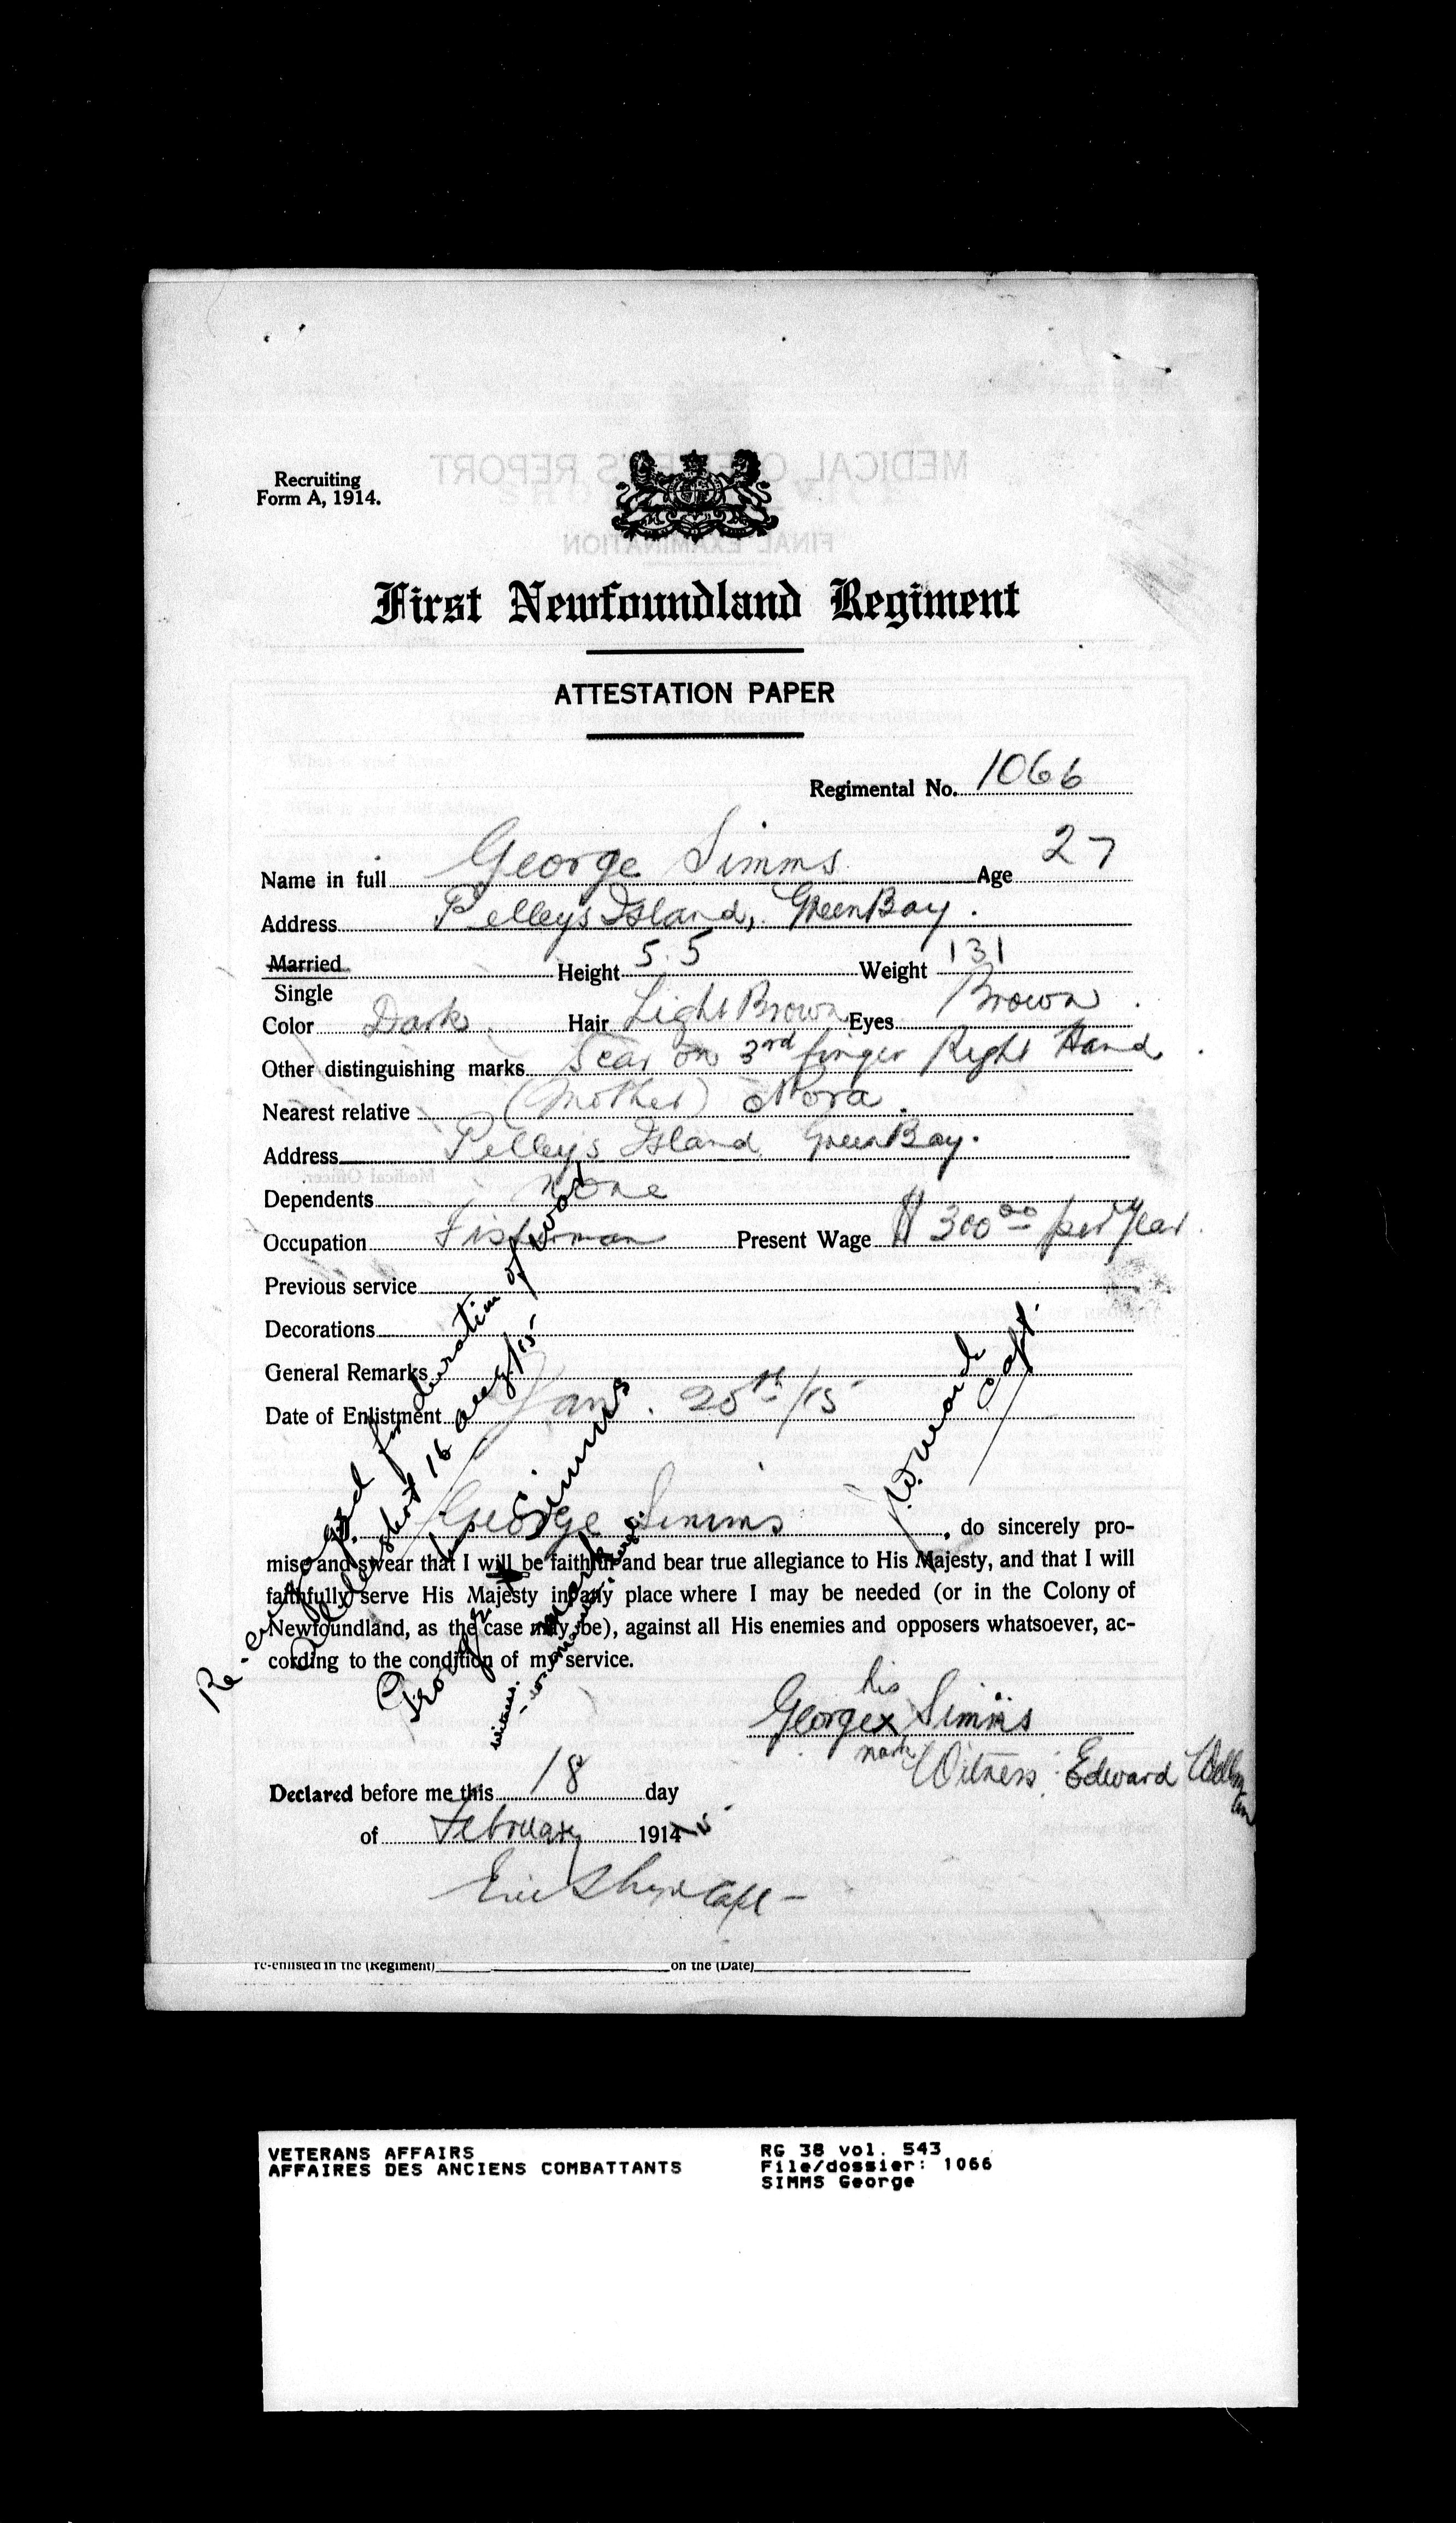 Recruiting
Form A, 1914.
First Newfoundland Regiment
ATTESTATION PAPER
Regimental No. 1066
Name in full George Simms Age 27
Address Pelleys Island, Green Bay.
Married
Single
Height 5.5 Weight 131
Color Dark Hair Light Brown Eyes Brown.
Other distinguishing marks Scar on 3rd finger Right Hand.
Nearest relative (Mother) Nora.
Address Pelleys Island Green Bay.
Dependents None
Occupation Fisherman Present Wage $300.00 per Year.
Previous service
Decorations
General Remarks
Date of Enlistment Jan. 20th/15
Re-engaged for duration of war
Aldershot 16 Aug/15
George Simms
his
mark
witness.
Capt.
I, George Simms, do sincerely pro-
mise and swear that I will be faithful and bear true allegiance to His Majesty, and that I will
faithfully serve His Majesty in any place where I may be needed (or in the Colony of
Newfoundland, as the case may be), against all His enemies and opposers whatsoever, ac-
cording to the condition of my service.
his
George x Simms
mark
Witness: Edward
Declared before me this 18 day
of February 1914 15
Capt
re-enlisted in the (Regiment) on the (Date)
MEDICAL OFFICER'S REPORT
FINAL EXAMINATION
Medical Officer.
VETERANS AFFAIRS
AFFAIRES DES ANCIENS COMBATTANTS
RG 38 vol. 543
File/dossier: 1066
SIMMS George